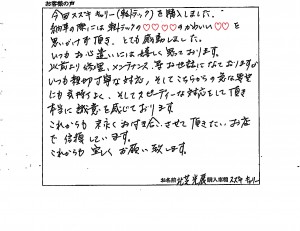 お客様の声
今回スズキ キャリー(軽トラック)を購入しました。
納車の際には軽トラックの♡♡♡のかわいい♡♡を
思いがけず頂き、とても感動しました。
いつもお心遣いには嬉しく思っております。
以前より修理、メンテナンス、等お世話になっておりますが
いつも親切丁寧な対応、そしてこちらからの急な要望
にも気持よく、そしてスピーディーな対応をして頂き
本当に敬意を感じております
これからも末永くお付き合いさせて頂きたいお店
で信頼しています。
これからも宜しくお願い致します。
お名前 購入車種 スズキ キャリー